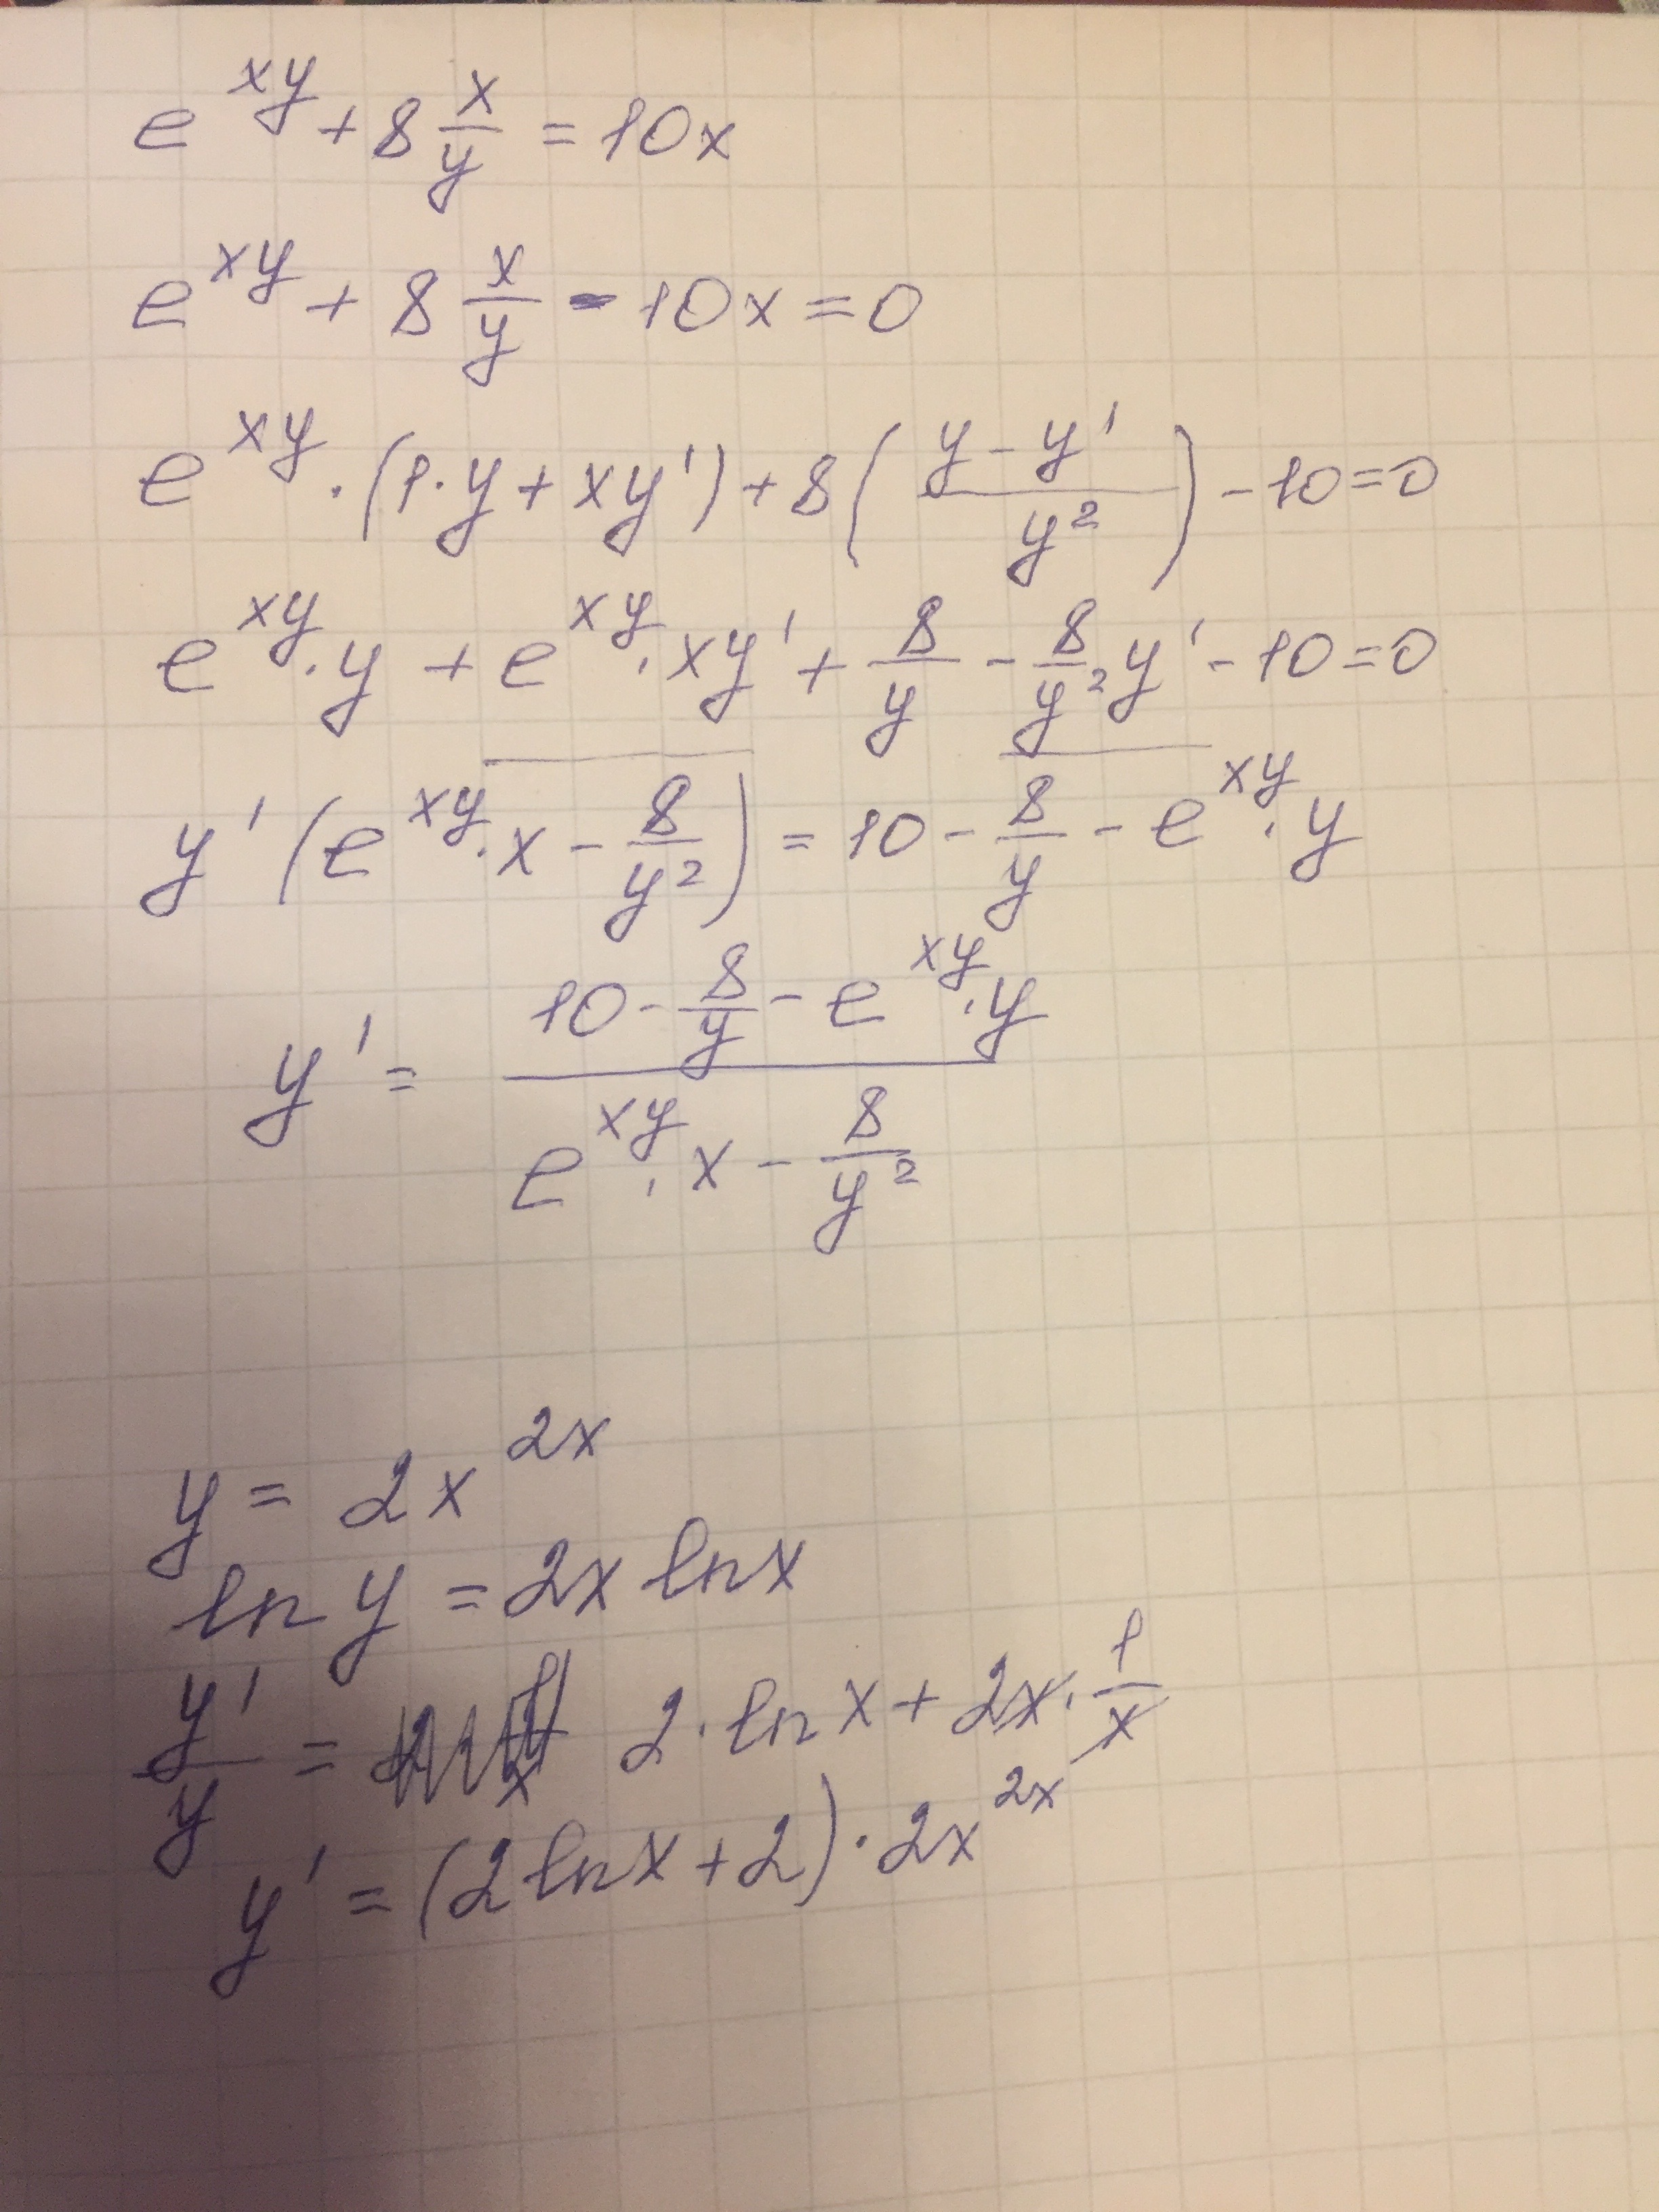 e^{xy} + 8 \frac{x}{y} = 10x
e^{xy} + 8 \frac{x}{y} - 10x = 0
e^{xy} \cdot (1 \cdot y + xy') + 8 \left( \frac{y - y'}{y^2} \right) - 10 = 0
e^{xy} \cdot y + e^{xy} \cdot xy' + \frac{8}{y} - \frac{8}{y^2} y' - 10 = 0
y' \left( e^{xy} \cdot x - \frac{8}{y^2} \right) = 10 - \frac{8}{y} - e^{xy} \cdot y
y' = \frac{10 - \frac{8}{y} - e^{xy} \cdot y}{e^{xy} \cdot x - \frac{8}{y^2}}
y = 2x^{2x}
ln y = 2x ln x
\frac{y'}{y} = 2 \cdot ln x + 2x \cdot \frac{1}{x}
y' = (2 ln x + 2) \cdot 2x^{2x}